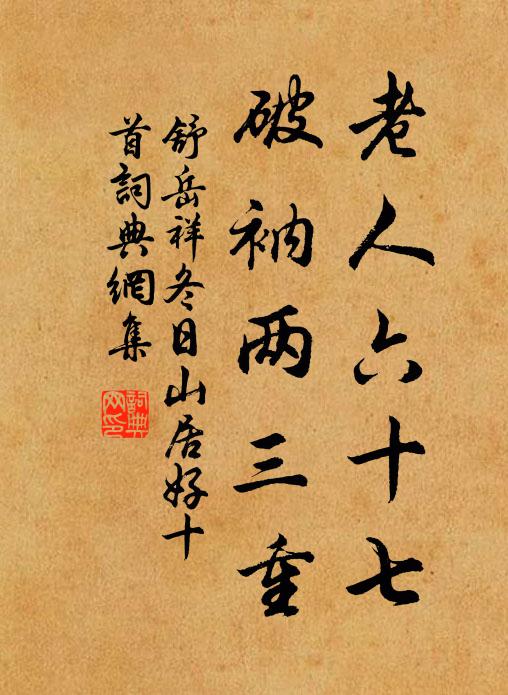 老人六十七
破衲两三重
舒岳祥冬日山居好十
首詞典網集
詞典网印